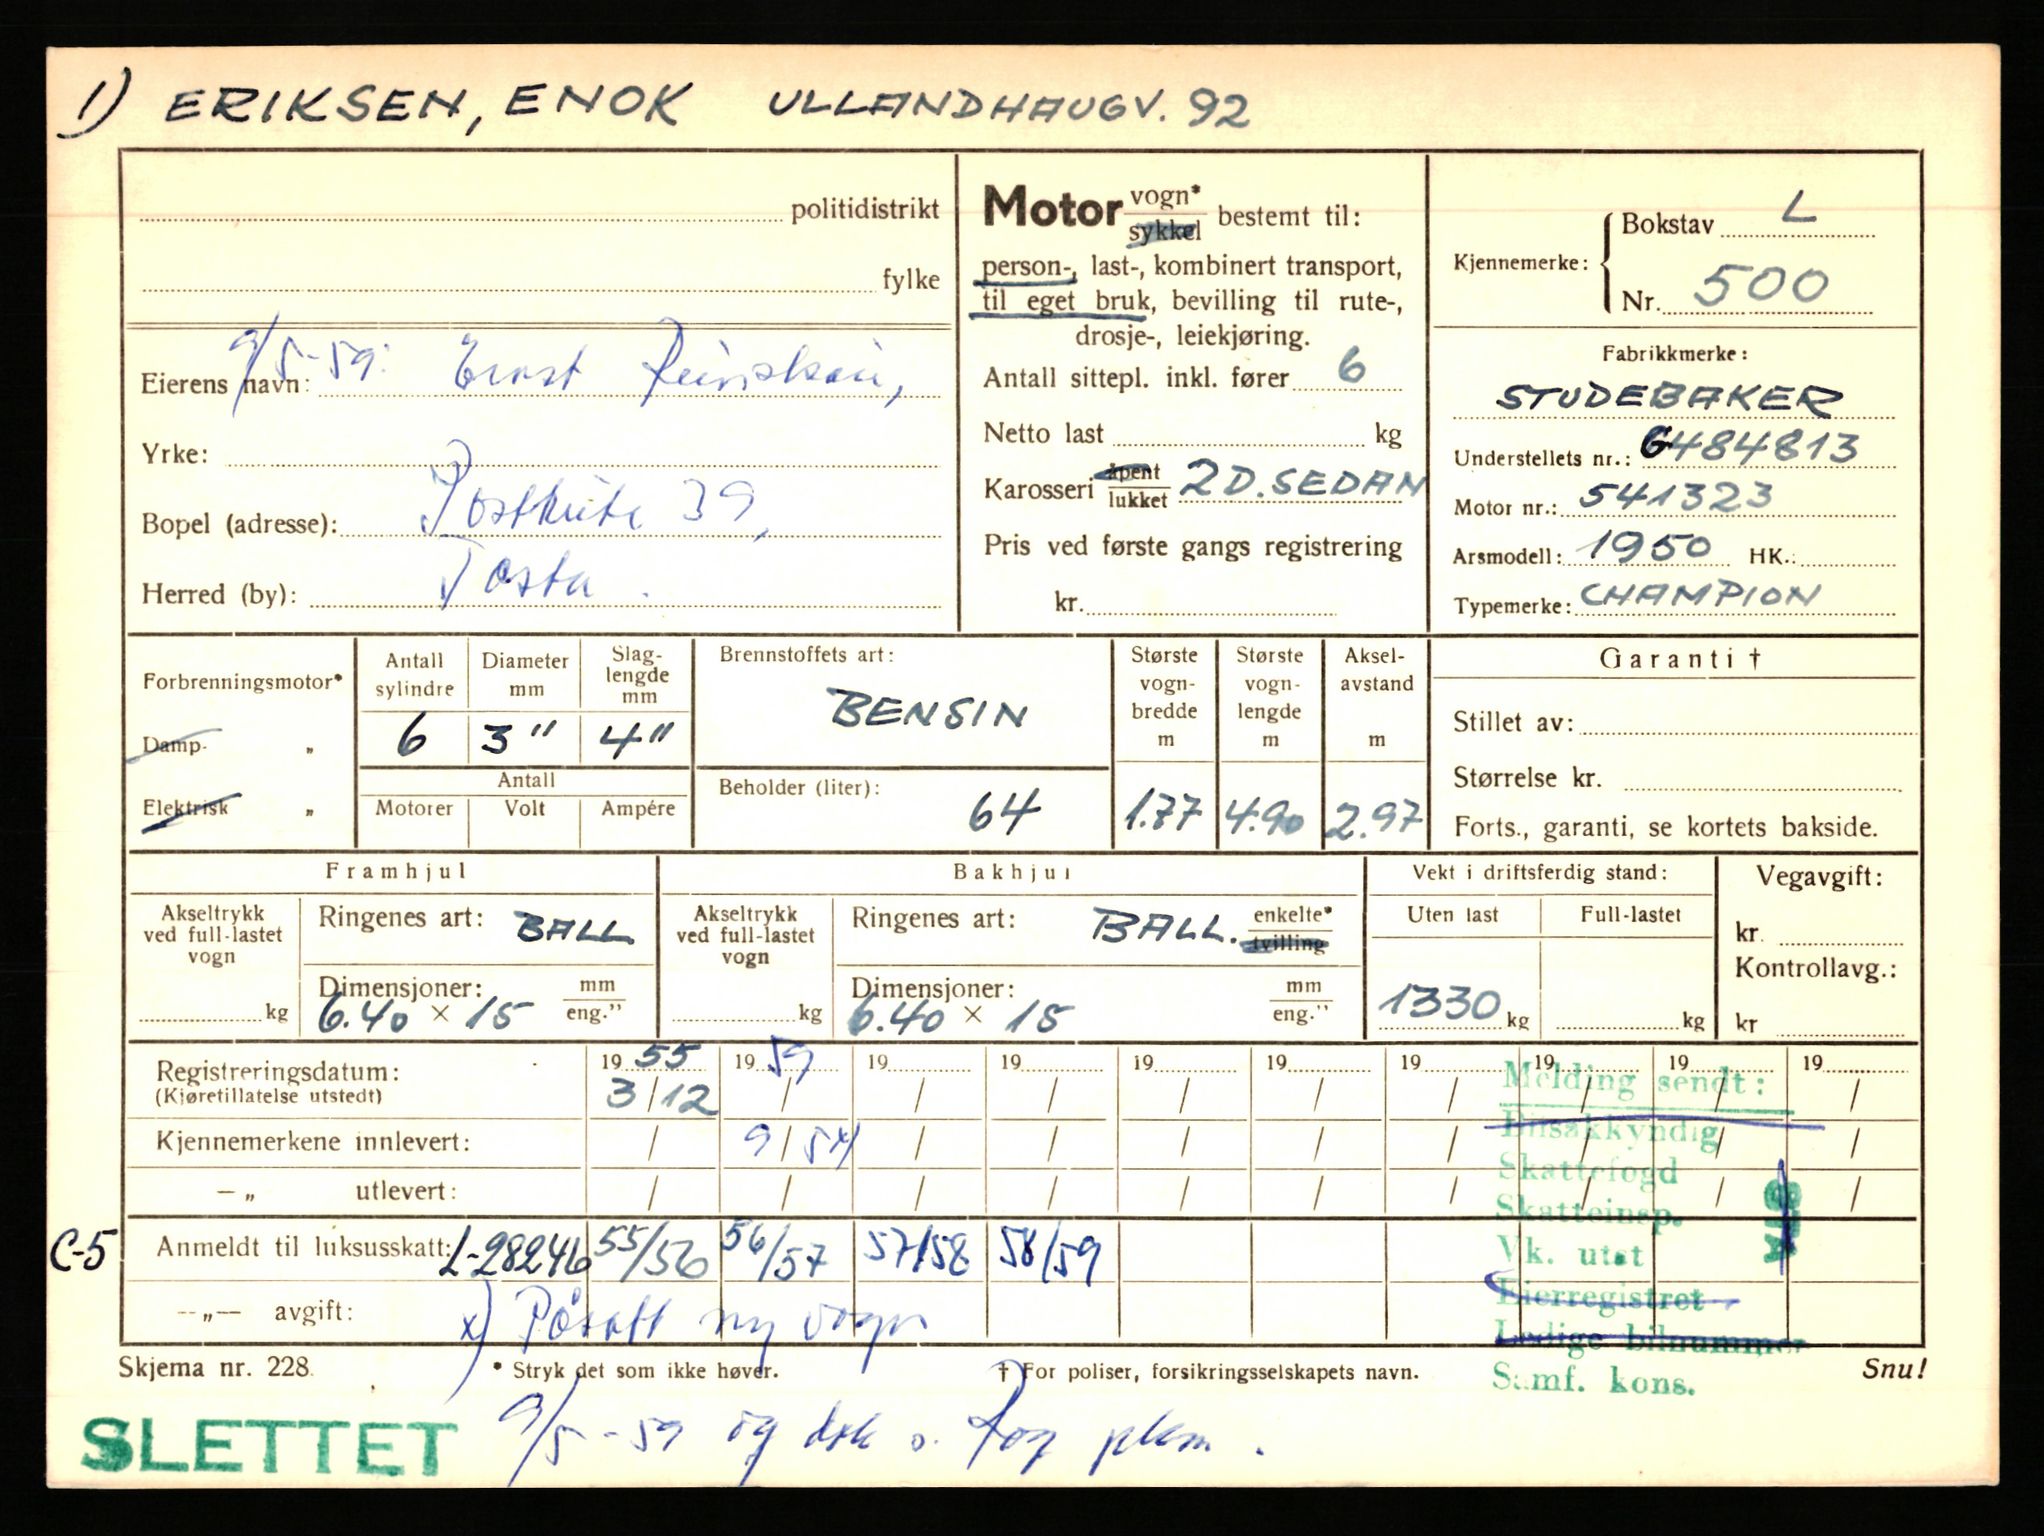 1) ERIKSEN, ENOK ULLANDHAUGV. 92
politidistrikt
fylke
Eierens navn: 9/5-59: Ernst
Yrke:
Bopel (adresse): 39,
Herred (by): Tasta.
Motor vogn* sykkel bestemt til:
person-, last-, kombinert transport,
til eget bruk, bevilling til rute-,
drosje-, leiekjøring.
Antall sittepl. inkl. fører 6
Netto last kg
Karosseri åpent lukket 2 D. SEDAN
Pris ved første gangs registrering
kr.
Kjennemerke: Bokstav L
Nr. 500
Fabrikkmerke:
STUDEBAKER
Understellets nr.: G484813
Motor nr.: 541323
Arsmodell: 1950 HK.:
Typemerke: CHAMPION
Forbrenningsmotor*
Damp- „
Elektrisk „
Antall sylindre 6
Diameter mm 3"
Slag-lengde mm 4"
Antall
Motorer Volt Ampére
Brennstoffets art:
BENSIN
Beholder (liter):
64
Største vogn-bredde m 1.77
Største vogn-lengde m 4.90
Aksel-avstand m 2.97
Garanti †
Stillet av:
Størrelse kr.
Forts., garanti, se kortets bakside.
Framhjul
Akseltrykk ved full-lastet vogn
kg
Ringenes art: BALL
Dimensjoner: mm eng."
6.40 × 15
Bakhjul
Akseltrykk ved full-lastet vogn
kg
Ringenes art: BALL. enkelte* tvilling
Dimensjoner: mm eng."
6.40 × 15
Vekt i driftsferdig stand:
Uten last Full-lastet
1330 kg kg
Vegavgift:
kr.
Kontrollavg.:
kr
Registreringsdatum: 19 55 19 59 19 19 19 19 19 19 19 19
(Kjøretillatelse utstedt) 3/12 / / / / / / / / /
Kjennemerkene innlevert: / 9/5 x) / / / / / / / /
— „ utlevert: / / / / / / / / / /
C-5 Anmeldt til luksusskatt: L-28246 55/56 56/57 57/58 58/59
—„— avgift: x) Påsatt ny vogn
Melding sendt:
Bilsakkyndig
Skattefogd
Skatteinsp.
Vk. utst
Eierregistret
Ledige bilnummer
Samf. kons.
Skjema nr. 228.
* Stryk det som ikke høver.
† For poliser, forsikringsselskapets navn.
Snu!
SLETTET
9/5-59